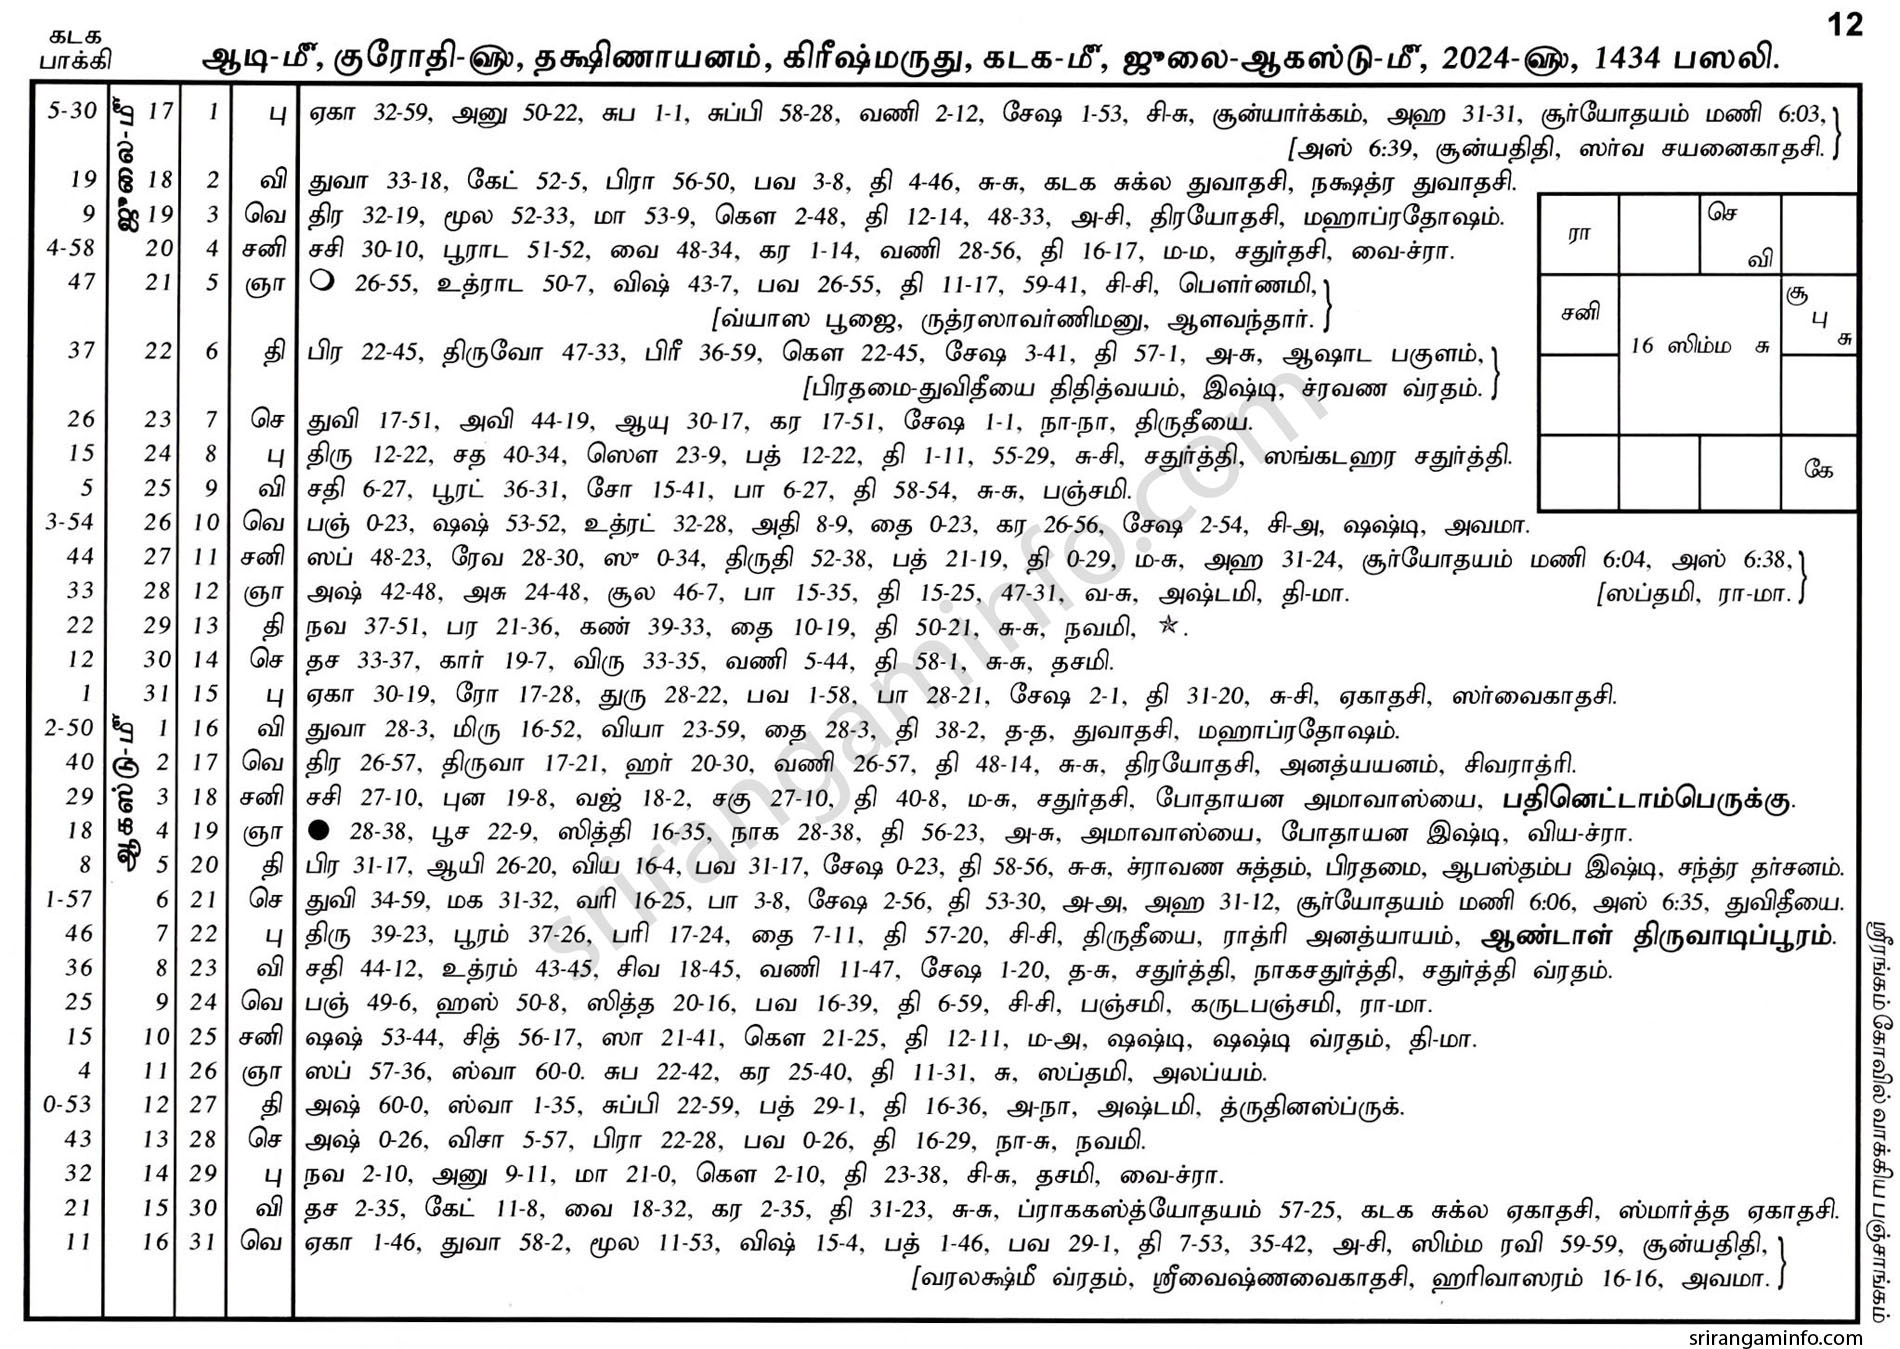 12
கடக
பாக்கி
ஆடி-மீ, குரோதி-ஹு, தக்ஷிணாயனம், கிரீஷ்மருது, கடக-மீ, ஜுலை-ஆகஸ்டு-மீ, 2024-ஹு, 1434 பஸலி.
ஜுலை-மீ
5-30 17 1 பு ஏகா 32-59, அனு 50-22, சுப 1-1, சுப்பி 58-28, வணி 2-12, சேஷ 1-53, சி-சு, சூன்யார்க்கம், அஹ 31-31, சூர்யோதயம் மணி 6:03,
[அஸ் 6:39, சூன்யதிதி, ஸர்வ சயனைகாதசி.
19 18 2 வி துவா 33-18, கேட் 52-5, பிரா 56-50, பவ 3-8, தி 4-46, சு-சு, கடக சுக்ல துவாதசி, நக்ஷத்ர துவாதசி.
9 19 3 வெ திர 32-19, மூல 52-33, மா 53-9, கௌ 2-48, தி 12-14, 48-33, அ-சி, திரயோதசி, மஹாப்ரதோஷம்.
4-58 20 4 சனி சசி 30-10, பூராட 51-52, வை 48-34, கர 1-14, வணி 28-56, தி 16-17, ம-ம, சதுர்தசி, வை-ச்ரா.
47 21 5 ஞா 26-55, உத்ராட 50-7, விஷ் 43-7, பவ 26-55, தி 11-17, 59-41, சி-சி, பௌர்ணமி,
[வ்யாஸ பூஜை, ருத்ரஸாவர்ணிமனு, ஆளவந்தார்.
37 22 6 தி பிர 22-45, திருவோ 47-33, பிரீ 36-59, கௌ 22-45, சேஷ 3-41, தி 57-1, அ-சு, ஆஷாட பகுளம்,
[பிரதமை-துவிதீயை திதித்வயம், இஷ்டி, ச்ரவண வ்ரதம்.
26 23 7 செ துவி 17-51, அவி 44-19, ஆயு 30-17, கர 17-51, சேஷ 1-1, நா-நா, திருதீயை.
15 24 8 பு திரு 12-22, சத 40-34, ஸௌ 23-9, பத் 12-22, தி 1-11, 55-29, சு-சி, சதுர்த்தி, ஸங்கடஹர சதுர்த்தி.
5 25 9 வி சதி 6-27, பூரட் 36-31, சோ 15-41, பா 6-27, தி 58-54, சு-சு, பஞ்சமி.
3-54 26 10 வெ பஞ் 0-23, ஷஷ் 53-52, உத்ரட் 32-28, அதி 8-9, தை 0-23, கர 26-56, சேஷ 2-54, சி-அ, ஷஷ்டி, அவமா.
44 27 11 சனி ஸப் 48-23, ரேவ 28-30, ஸு 0-34, திருதி 52-38, பத் 21-19, தி 0-29, ம-சு, அஹ 31-24, சூர்யோதயம் மணி 6:04, அஸ் 6:38,
33 28 12 ஞா அஷ் 42-48, அசு 24-48, சூல 46-7, பா 15-35, தி 15-25, 47-31, வ-சு, அஷ்டமி, தி-மா. [ஸப்தமி, ரா-மா.
22 29 13 தி நவ 37-51, பர 21-36, கண் 39-33, தை 10-19, தி 50-21, சு-சு, நவமி, ☆.
12 30 14 செ தச 33-37, கார் 19-7, விரு 33-35, வணி 5-44, தி 58-1, சு-சு, தசமி.
1 31 15 பு ஏகா 30-19, ரோ 17-28, துரு 28-22, பவ 1-58, பா 28-21, சேஷ 2-1, தி 31-20, சு-சி, ஏகாதசி, ஸர்வைகாதசி.
ஆகஸ்டு-மீ
2-50 1 16 வி துவா 28-3, மிரு 16-52, வியா 23-59, தை 28-3, தி 38-2, த-த, துவாதசி, மஹாப்ரதோஷம்.
40 2 17 வெ திர 26-57, திருவா 17-21, ஹர் 20-30, வணி 26-57, தி 48-14, சு-சு, திரயோதசி, அனத்யயனம், சிவராத்ரி.
29 3 18 சனி சசி 27-10, புன 19-8, வஜ் 18-2, சகு 27-10, தி 40-8, ம-சு, சதுர்தசி, போதாயன அமாவாஸ்யை, பதினெட்டாம்பெருக்கு.
18 4 19 ஞா 28-38, பூச 22-9, ஸித்தி 16-35, நாக 28-38, தி 56-23, அ-சு, அமாவாஸ்யை, போதாயன இஷ்டி, விய-ச்ரா.
8 5 20 தி பிர 31-17, ஆயி 26-20, விய 16-4, பவ 31-17, சேஷ 0-23, தி 58-56, சு-சு, ச்ராவண சுத்தம், பிரதமை, ஆபஸ்தம்ப இஷ்டி, சந்த்ர தர்சனம்.
1-57 6 21 செ துவி 34-59, மக 31-32, வரி 16-25, பா 3-8, சேஷ 2-56, தி 53-30, அ-அ, அஹ 31-12, சூர்யோதயம் மணி 6:06, அஸ் 6:35, துவிதீயை.
46 7 22 பு திரு 39-23, பூரம் 37-26, பரி 17-24, தை 7-11, தி 57-20, சி-சி, திருதீயை, ராத்ரி அனத்யாயம், ஆண்டாள் திருவாடிப்பூரம்.
36 8 23 வி சதி 44-12, உத்ரம் 43-45, சிவ 18-45, வணி 11-47, சேஷ 1-20, த-சு, சதுர்த்தி, நாகசதுர்த்தி, சதுர்த்தி வ்ரதம்.
25 9 24 வெ பஞ் 49-6, ஹஸ் 50-8, ஸித்த 20-16, பவ 16-39, தி 6-59, சி-சி, பஞ்சமி, கருடபஞ்சமி, ரா-மா.
15 10 25 சனி ஷஷ் 53-44, சித் 56-17, ஸா 21-41, கௌ 21-25, தி 12-11, ம-அ, ஷஷ்டி, ஷஷ்டி வ்ரதம், தி-மா.
4 11 26 ஞா ஸப் 57-36, ஸ்வா 60-0. சுப 22-42, கர 25-40, தி 11-31, சு, ஸப்தமி, அலப்யம்.
0-53 12 27 தி அஷ் 60-0, ஸ்வா 1-35, சுப்பி 22-59, பத் 29-1, தி 16-36, அ-நா, அஷ்டமி, த்ருதினஸ்ப்ருக்.
43 13 28 செ அஷ் 0-26, விசா 5-57, பிரா 22-28, பவ 0-26, தி 16-29, நா-சு, நவமி.
32 14 29 பு நவ 2-10, அனு 9-11, மா 21-0, கௌ 2-10, தி 23-38, சி-சு, தசமி, வை-ச்ரா.
21 15 30 வி தச 2-35, கேட் 11-8, வை 18-32, கர 2-35, தி 31-23, சு-சு, ப்ராககஸ்த்யோதயம் 57-25, கடக சுக்ல ஏகாதசி, ஸ்மார்த்த ஏகாதசி.
11 16 31 வெ ஏகா 1-46, துவா 58-2, மூல 11-53, விஷ் 15-4, பத் 1-46, பவ 29-1, தி 7-53, 35-42, அ-சி, ஸிம்ம ரவி 59-59, சூன்யதிதி,
[வரலக்ஷ்மீ வ்ரதம், ஸ்ரீவைஷ்ணவைகாதசி, ஹரிவாஸரம் 16-16, அவமா.
ரா
செ
வி
சனி
16 ஸிம்ம சு
சூ
பு
சு
கே
ஸ்ரீரங்கம் கோவில் வாக்கிய பஞ்சாங்கம்
srirangaminfo.com
srirangaminfo.com